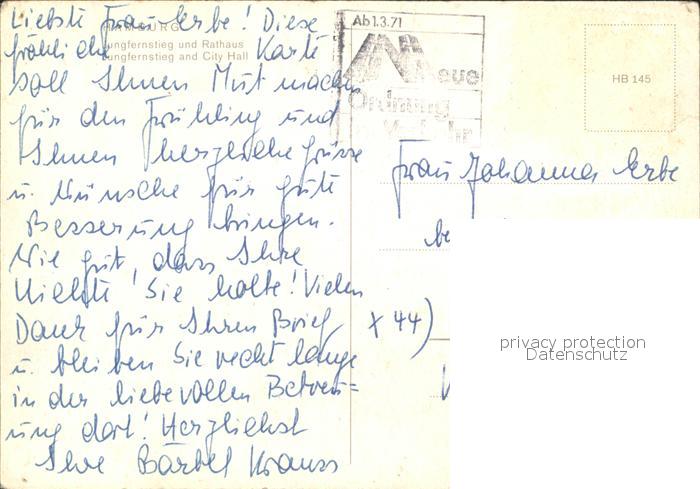 Liebste Frau Erbe! Diese
HAMBURG
fröhliche Karte
Jungfernstieg und Rathaus
Jungfernstieg and City Hall
soll Ihnen Mut machen
für den Frühling und
Ihnen herzliche Grüsse
u. Wünsche für gute
Besserung bringen.
Wie gut, dass Ihre
Nichte Sie holte! Vielen
Dank für Ihren Brief
u. bleiben Sie recht lange
in der liebevollen Betreu=
ung dort! Herzlichst
Ihre Bärbel Krauss
x 44)
Ab 1.3.71
Neue
Ordnung
HB 145
Frau Johanna Erbe
be
privacy protection
Datenschutz